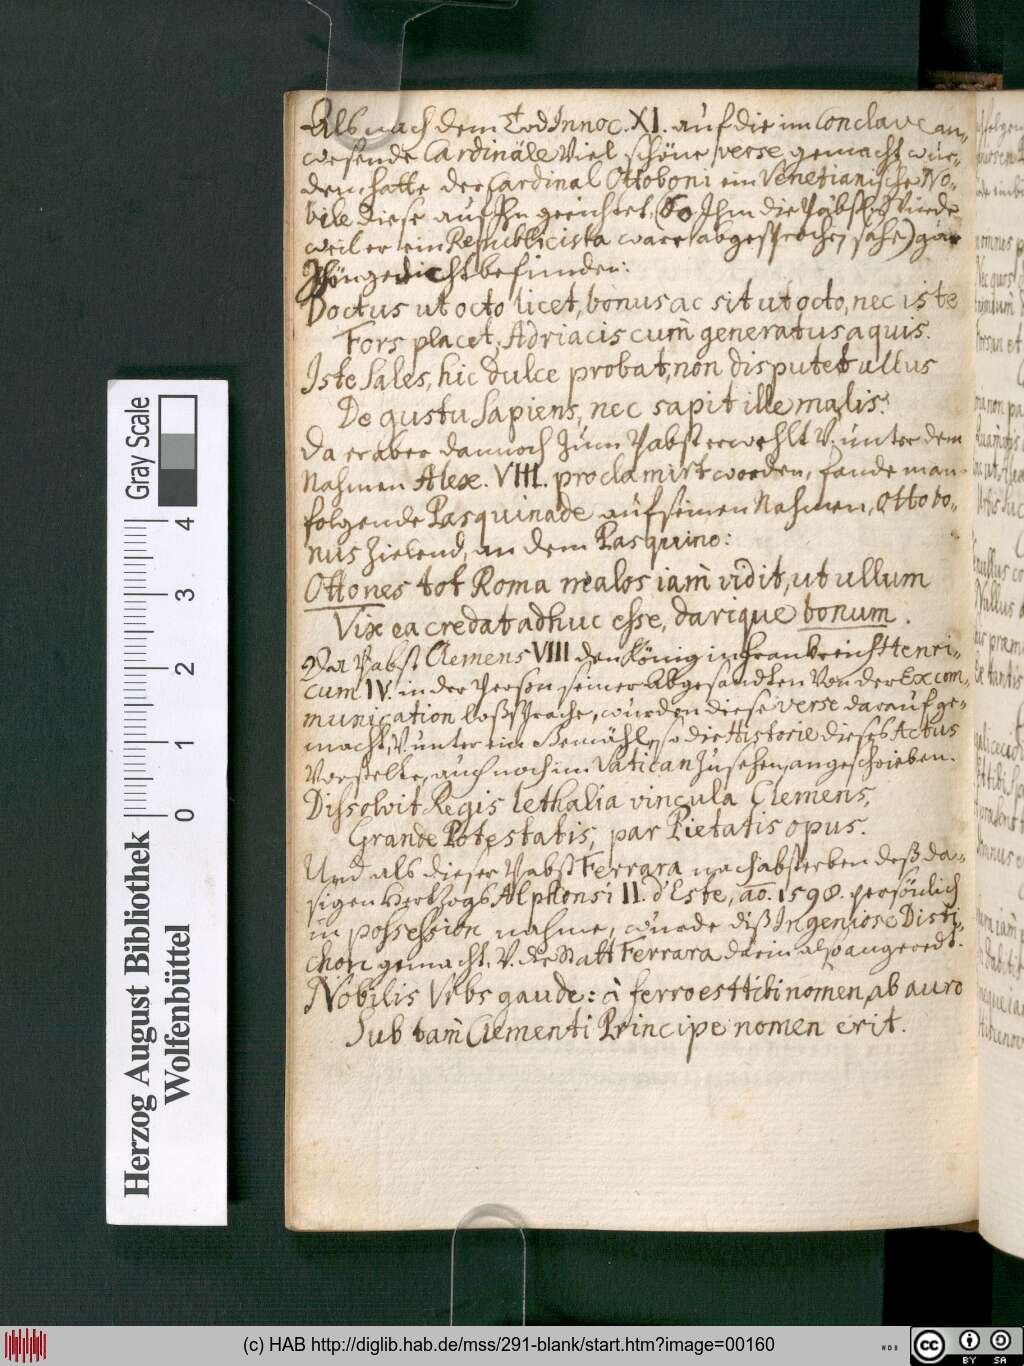 Als nach dem Tod Innoc. XI. auf die im Conclave an-
wesende Cardinäle Viel schöne verse gemacht wur-
den hatte der Cardinal Ottoboni ein Venetianische No-
bile diese auf Ihn gerichtet. (so Ihm die Päbstl. Würde
weil er ein Republicista ware abgesprochen sahe) gar
schön gedicht befunden:
Doctus ut octo licet, bonus ac sit ut octo, nec iste
Fors placet, Adriacis cum̄ generatus aquis.
Iste Sales, hic dulce probat, non disputet ullus
De gustu Sapiens, nec sapit ille malis.
Da er aber dannoch zum Pabst erwehlt V. unter dem
Nahmen Alex. VIII. proclamirt worden, fande man
folgende Pasquinade auf seinen Nahmen, Ottobo-
nus zielend, an dem Pasquino:
Ottones tot Roma malos iam̄ vidit, ut ullum
Vix ea credat adhuc esse, darique bonum.
Der Pabst Clemens VIII den König in Frankreich Henri-
cum IV. in der Person seiner Abgesandten Von der Excom-
munication loßsprache, wurden diese verse darauf ge-
macht, V. unter ein Gemählt, so die Historie dieses Actus
Vorstelte, auch noch im Vatican zu sehen, angeschrieben.
Dissolvit Regis lethalia vincula Clemens,
Grande Potestatis, par Pietatis opus.
Und als dieser Pabst Ferrara nach absterben deß da-
sigen Hertzogs Alphonsi II. d'Este, ao. 1598. persönlich
in possession nahme, wurde diß Ingeniose Disti-
chon gemacht, V. die Statt Ferrara darin also angeredt.
Nobilis Urbs gaude: à ferro est tibi nomen, ab auro
Sub tam̄ Clementi Principe nomen erit.
Gray Scale
4
3
2
1
0
Herzog August Bibliothek
Wolfenbüttel
(c) HAB http://diglib.hab.de/mss/291-blank/start.htm?image=00160
WDB
cc
BY SA